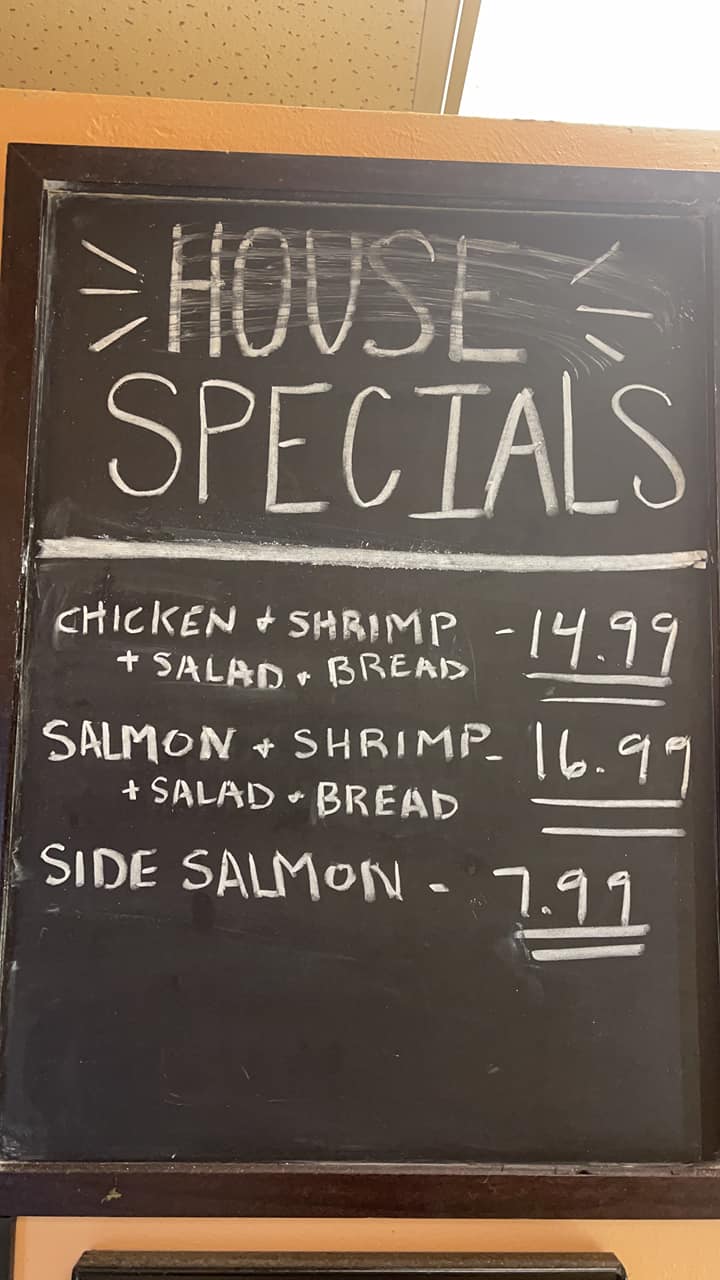 HOUSE
SPECIALS
CHICKEN + SHRIMP - 14.99
+ SALAD + BREAD
SALMON + SHRIMP - 16.99
+ SALAD + BREAD
SIDE SALMON - 7.99